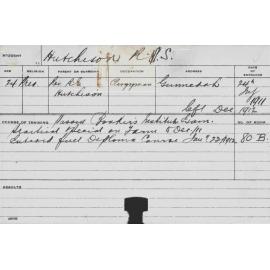 STUDENT Hutchison R. S.
AGE RELIGION PARENT OR GUARDIAN OCCUPATION ADDRESS DATE OF ENTRANCE
24 Pres. Rev. Clergyman Gunnedah 24th
Hutchison July
1911
Left Dec 1912
COURSE OF TRAINING NO. OF ROOM
Practical Special on Farm 5 Dec 11 80 B.
Entered full Diploma Course Jan 23 1912
RESULTS
DATE